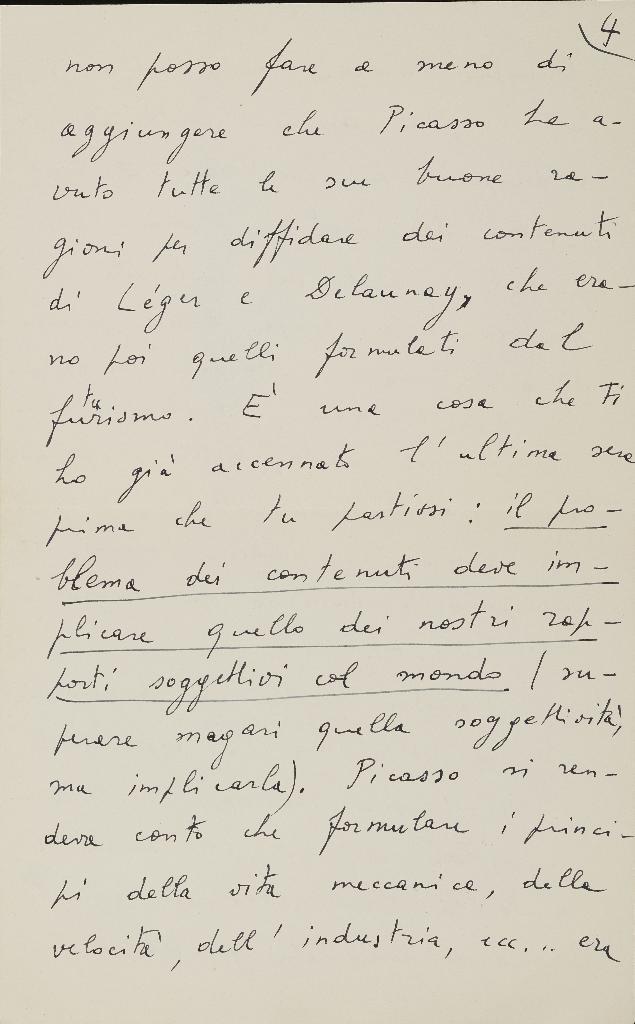 4
non posso fare a meno di
aggiungere che Picasso ha a-
vuto tutte le sue buone ra-
gioni per diffidare dei contenuti
di Léger e Delaunay, che era-
no poi quelli formulati dal
futurismo. E' una cosa che Ti
ho già accennato l'ultima sera
prima che tu partissi: il pro-
blema dei contenuti deve im-
plicare quello dei nostri rap-
porti soggettivi col mondo (su-
perare magari quella soggettività,
ma implicarla). Picasso si ren-
deva conto che formulare i princi-
pi della vita meccanica, della
velocità, dell'industria, ecc... era